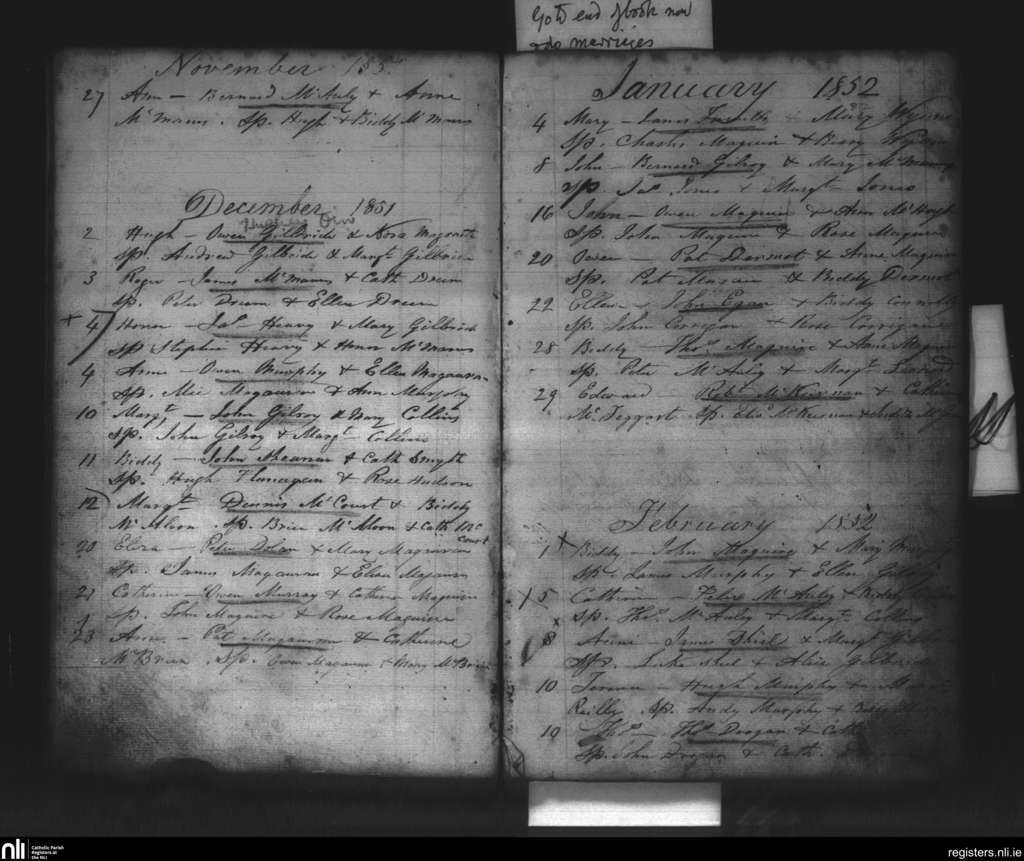 Go to end of book now
marriages
November 185
27 Ann — Bernard McAuly & Anne
McManus. Sp. Hugh & Biddy McManus
December 1851
2 Hugh — Owen Gilbride & Nora Magrath
Sp. Andrew Gilbride & Margt. Gilbride
3 Roger — James McManus & Cath Drum
Sp. Peter Drum & Ellen Drum
x 4 Honor — Jas. Heavy & Mary Gilbride
Sp Stephen Heavy & Honor McManus
4 Anne — Owen Murphy & Ellen Magauran
Sp. Mic Magauran & Ann Murphy
10 Margt. — John Gilroy & Mary Collins
Sp. John Gilroy & Margt Collins
11 Biddy — John & Cath Smyth
Sp. Hugh Flanagan & Rose Hudson
12 Margt. Dennis McCourt & Biddy
McAloon. Sp. Brien McAloon & Cath Mc
Court
20 Eliza — Peter Dolan & Mary Magauran
Sp. James Magauran & Ellen Magauran
21 Catherine — Owen Murray & Catherine Maguire
Sp. John Maguire & Rose Maguire
23 Anne — Pat Magauran & Catherine
McBrien. Sp. Owen Magauran & Mary McBrien
January 1852
4 Mary — James & Mary Wynne
Sp. Charles Maguire & Bessy Wynne
8 John — Bernard Gilroy & Mary McManus
Sp. Jas. Jones & Margt — Jones
16 John — Owen Maguire & Ann McHugh
Sp. John Maguire & Rose Maguire
20 Owen — Pat Dermot & Anne Maguire
Sp. Pat Maguire & Biddy Dermot
22 Ellen — John Egan & Biddy Connolly
Sp. John Corrigan & Rose Corrigan
28 Biddy — Thos. Maguire & Anne Maguire
Sp. Peter McAuly & Margt. Leonard
29 Edward — Robt McKiernan & Catherine
McTeggart Sp. McKiernan &
February 1852
1 x Biddy — John Maguire & Mary
Sp. James Murphy & Ellen
x 5 Catherine — Felix McAuly & Biddy
Sp. Thos. McAuly & Margt. Collins
x 8 Anne — James Shiel & Margt
Sp. Luke Shiel & Alice Gilbride
10 — Hugh Murphy &
Reilly. Sp. Andy Murphy &
10 Thos. — Thos. Drogan & Cath
Sp. John Drogan & Cath.
nli Catholic Parish
Registers at
the NLI
registers.nli.ie